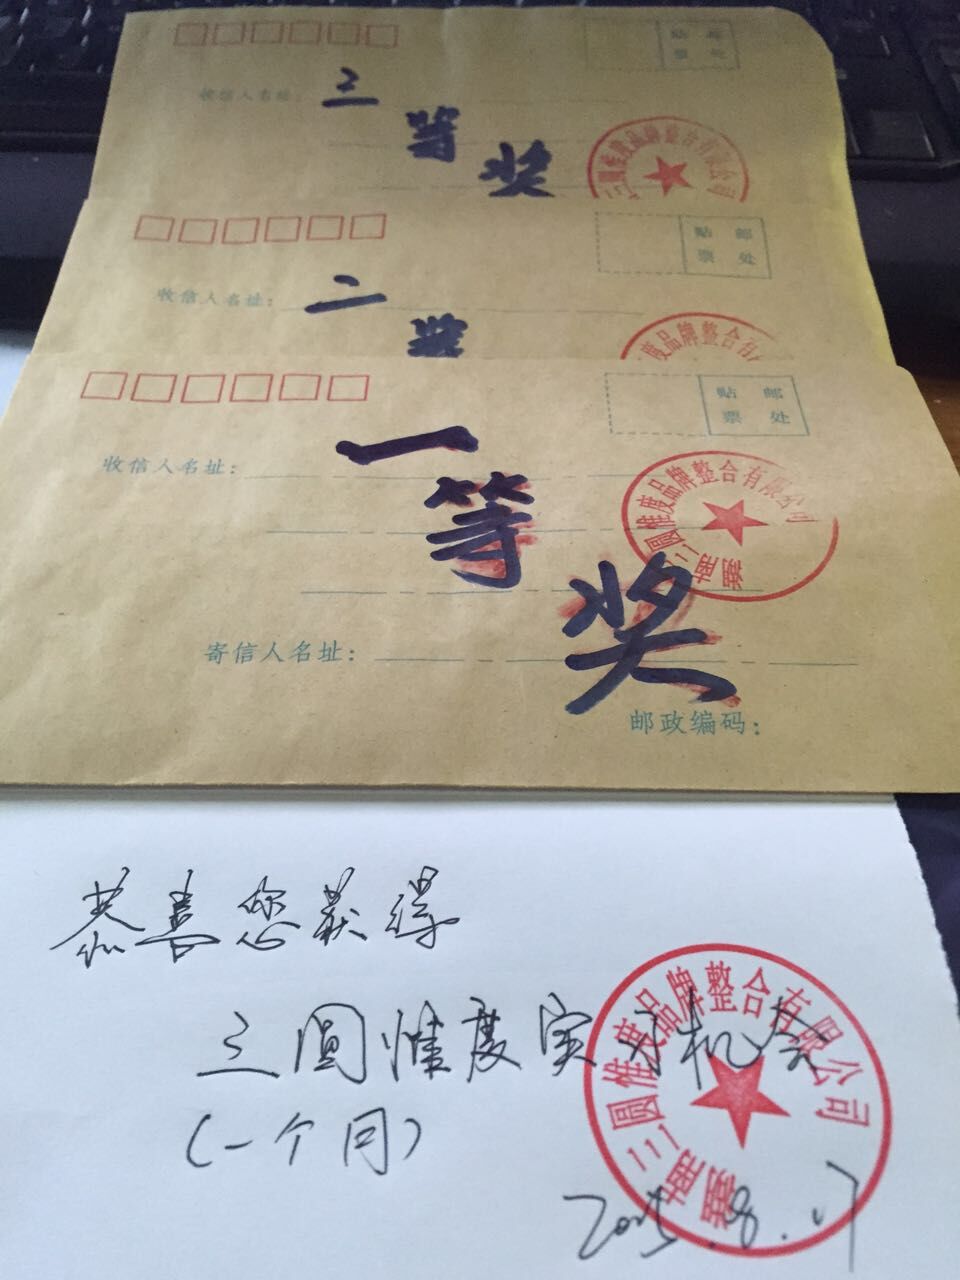 贴 邮
票 处
收信人名址：
三等奖
三圆惟度品牌整合有限公司
贴 邮
票 处
收信人名址：
二
奖
度品牌整合有
贴 邮
票 处
收信人名址：
一等奖
三圆惟度品牌整合有限公司
寄信人名址：
邮政编码：
恭喜您获得
三圆惟度实习机会
（一个月）
三圆惟度品牌整合有限公司
2015.8.17